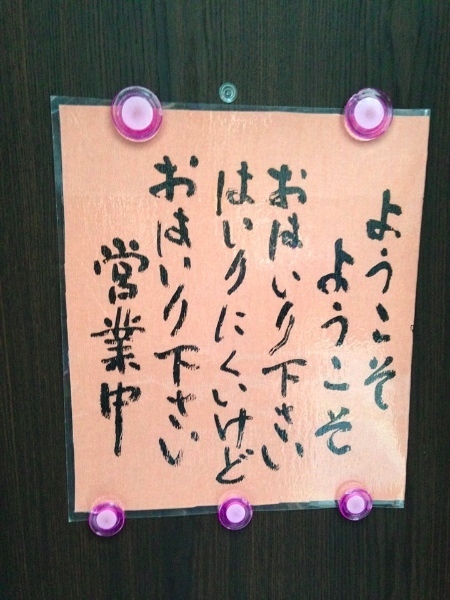 ようこそ
ようこそ
おはいり下さい
はいりにくいけど
おはいり下さい
営業中